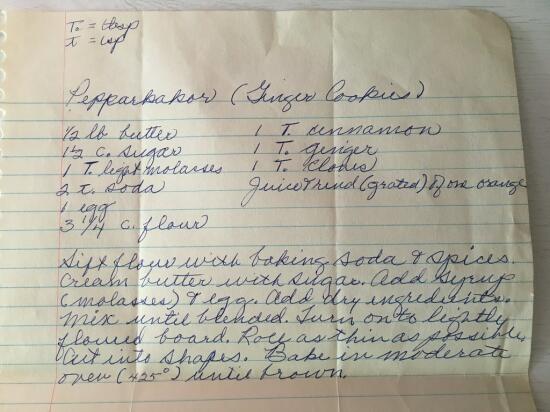 T. = tbsp
t = tsp
Pepparkakor (Ginger Cookies)
1/2 lb butter 1 T. cinnamon
1 1/2 c. sugar 1 T. ginger
1 T. light molasses 1 T. cloves
2 t. soda Juice & rind (grated) of one orange
1 egg
3 1/4 c. flour
Sift flour with baking soda & spices.
Cream butter with sugar. Add syrup
(molasses) & egg. Add dry ingredients.
Mix until blended. Turn on to lightly
floured board. Roll as thin as possible.
Cut into shapes. Bake in moderate
oven (425°) until brown.